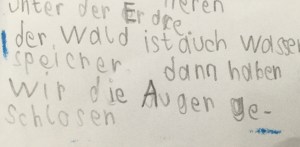 unter der Erdre.
der Wald ist auch Wasser
speicher dann haben
wir die Augen ge-
schlosen